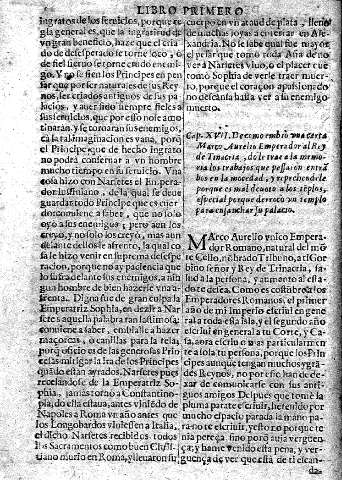 LIBRO PRIMERO
ingratos de los seruicios, porque es
regla general es, que la ingratitud de
vn gran beneficio, haze que el criado
de desesperado se torne loco, o
de fiel sieruo se torne cruel enemigo.
Y no se fien los Principes en pensar
que por ser naturales de sus Reynos,
ser criados antiguos de sus palacios,
y auer sido siempre fieles a
sus seruicios, que por esso no se amotinaràn,
y se tornaràn sus enemigos,
ca la tal imaginacion es vana, porq
el Principe que de hecho ingrato
no podrà conseruar a vn hombre
mucho tiempo en su seruicio. Vna
cosa hizo con Narsetes el Emperador
Iustiniano, de la qual se deue
guardar todo Principe que es cuerdo:
conuiene a saber, que no solo
oyo a sus enemigos, pero aun los
creyo, y no solo los creyo, mas aun
delante dellos le afrento, la qual cosa
le hizo venir en suprema desesperacion,
porque no ay paciencia que
lo sufra delante sus enemigos, a ninguno
hombre de bien hazerse vna afrenta.
Digna fue de gran culpa la
Emperatriz Sophia, en dezir a Narsetes
aquella palabra tan lastimosa:
conuiene a saber, embialle a hazer
maçorcas, o canillas para la tela,
porq oficio es de las generosas Princesas
mitigar la ira de los Principes
quando estan ayrados. Narsetes pues
recelandose de la Emperatriz Sophia,
jamas torno a Constantinopla,
do ella estaua, antes vinose de
Napoles a Roma vn año antes que
los Longobardos viniessen a Italia,
el dicho Narsetes recibidos todos
los Sacramentos como buen Christiano
murio en Roma, y lleuaron su
cuerpo en vn ataud de plata, lleno
de muchas joyas a enterrar en Alexandria.
No se sabe qual fue mayor,
el pesar que tomò toda Asia de no
ver a Narsetes viuo, o el placer que
tomò Sophia de verle traer muerto,
porque el coraçon apassionado
no descansa hasta ver a su enemigo
muerto.
Cap. XVII. De como embiò vna carta
Marco Aurelio Emperador al Rey
de Trinacria, do le trae a la memoria
los trabajos que passaron entrambos
en la mocedad, y reprehendele
porque es mal deuoto a los templos,
especial porque derroco vn templo
para ensanchar su palacio.
MArco Aurelio vnico Emperador
Romano, natural del monte
Celio, nõbrado Tribuno, a ti Gorbino
señor y Rey de Trinacria, salud
a la persona, y aumento al estado
te desea. Como es costumbre de los
Emperadores Romanos, el primer
año de mi Imperio escriui en general
a toda essa isla, y el segundo año
escriui en general a tu Corte, y Casa,
aora escriuo mas particularmente
a sola tu persona, porque los Principes
aunque tengan muchos y grandes
Reynos, no por esso han de dexar
de comunicarse con sus antiguos
amigos. Despues que tomè la
pluma para te escriuir, he tenido por
mucho espacio parada la mano para
no te escriuir, y esto no porque tenia
pereza, sino por auia verguença;
y hame venido esta pena, y verguença
de ver que està de ti escanda-